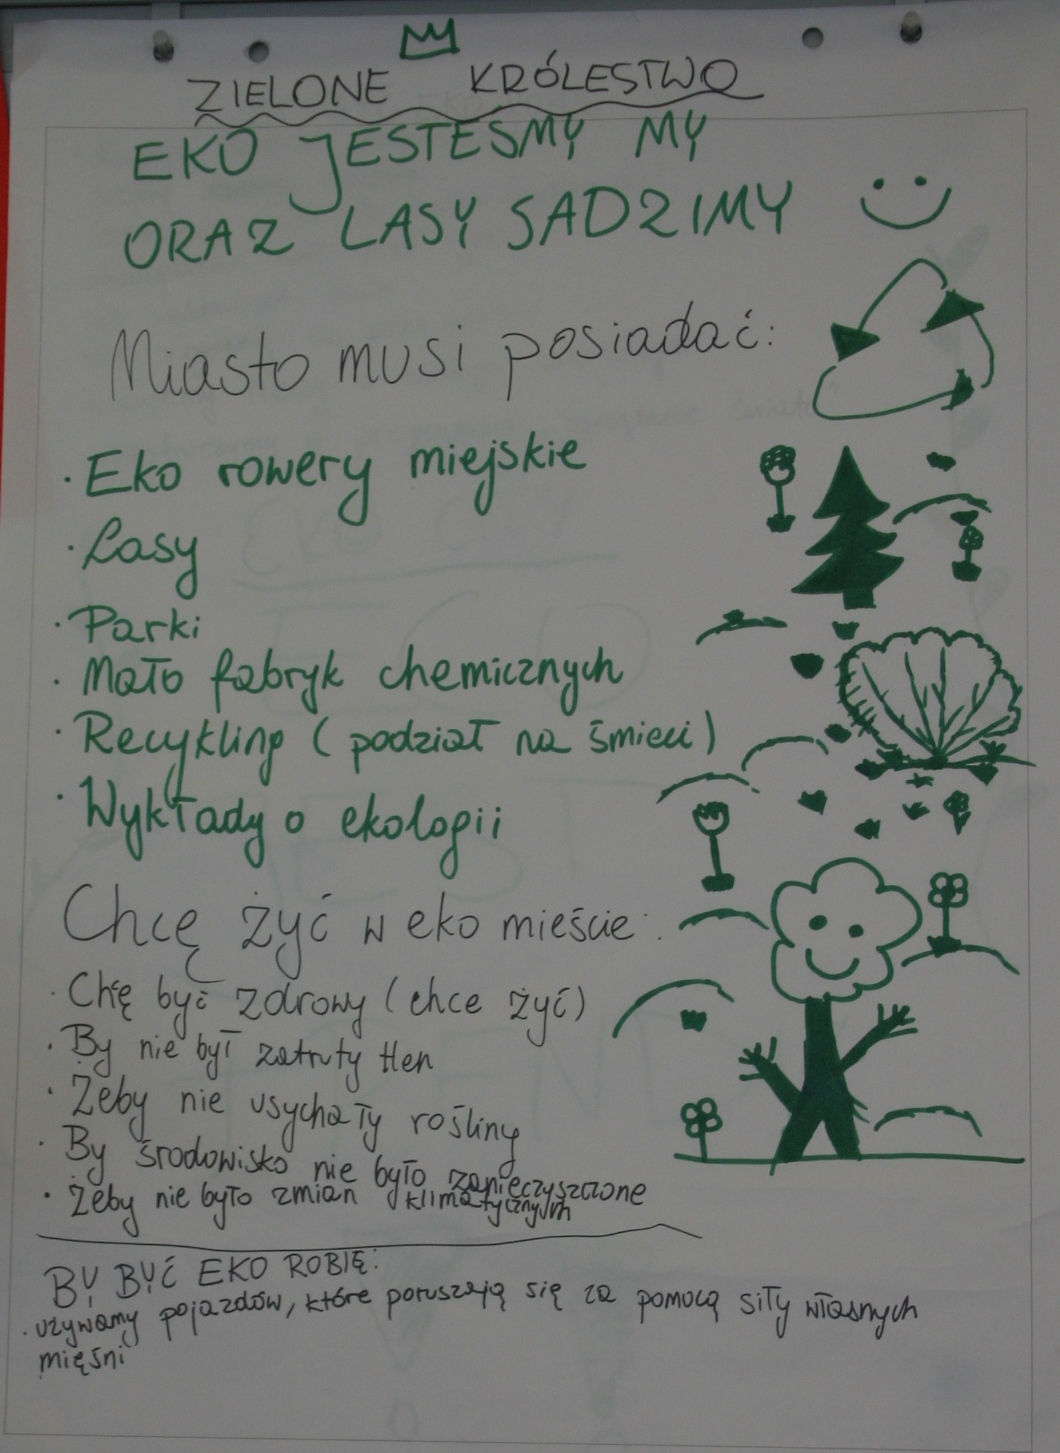 ZIELONE KRÓLESTWO
EKO JESTESMY MY
ORAZ LASY SADZIMY
Miasto musi posiadać:
· Eko rowery miejskie
· Lasy
· Parki
· Mało fabryk chemicznych
· Recykling ( podział na śmieci )
· Wykłady o ekologii
Chcę żyć w eko mieście :
· Chę być zdrowy ( chce żyć )
· By nie był zatruty tlen
· Żeby nie usychały rośliny
· By środowisko nie było zanieczyszczone
· Żeby nie było zmian klimatycznych
BY BYĆ EKO ROBIĘ:
· używamy pojazdów, które poruszają się za pomocą siły własnych
mięśni